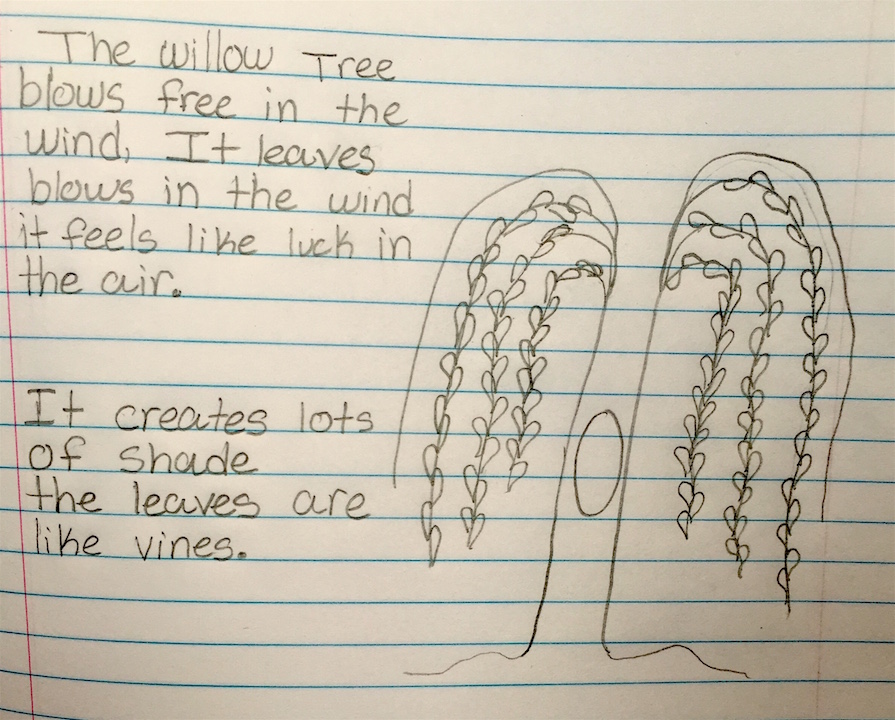 The willow Tree
blows free in the
wind, It leaves
blows in the wind
it feels like luck in
the air.
It creates lots
of shade
the leaves are
like vines.